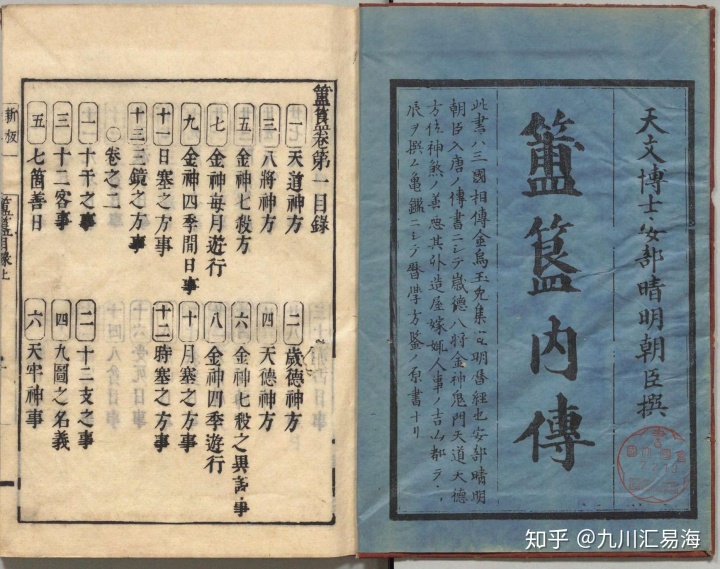 天文博士安部晴明朝臣撰
簠簋内傳
此書ハ三國相傳金烏玉兎集
明曆経也安部晴明
朝臣入唐ノ傳書ニシテ歳德八將金神鬼門天道天德
方位神煞ノ善悪其外造屋嫁娵人事ノ吉凶都
辰ヲ撰ム亀鑑ニシテ曆學方鑒ノ原書ナリ
簠簋卷第一目録
一 天道神方
二 歲德神方
三 八將神方
四 天德神方
五 金神七殺方
六 金神七殺之異說事
七 金神每月遊行
八 金神四季遊行
九 金神四季間日事
十 月塞之方事
十一 日塞之方事
十二 時塞之方事
十三 三鏡之方事
〇卷之二
一 十干之事
二 十二支之事
三 十二客事
四 九圖之名義
五 七箇善日
六 天牢神事
新板
知乎 @九川汇易海